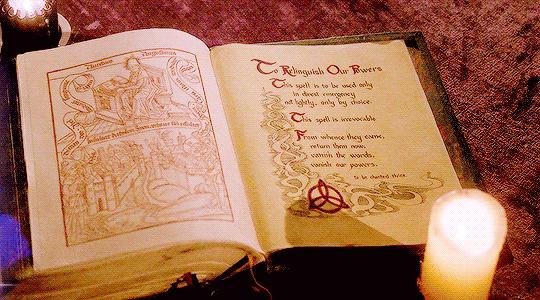 Augustinus
To Relinquish Our Powers
This spell is to be used only
in direst emergency
not lightly, only by choice.
This spell is irrevocable
From whence they came,
return them now,
vanish the words,
vanish our powers.
to be chanted thrice